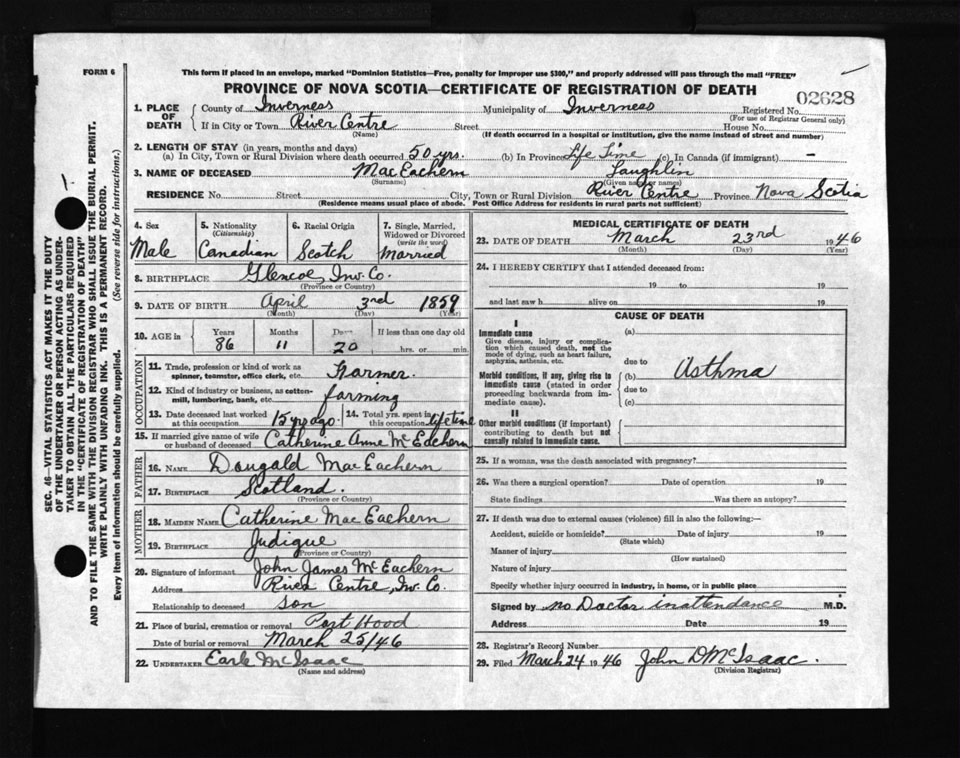 FORM 6
This form if placed in an envelope, marked "Dominion Statistics—Free, penalty for improper use $300," and properly addressed will pass through the mail "FREE"
PROVINCE OF NOVA SCOTIA—CERTIFICATE OF REGISTRATION OF DEATH
02628
1. PLACE OF DEATH
County of Inverness Municipality of Inverness Registered No.
(For use of Registrar General only)
If in City or Town River Centre Street House No.
(Name) (If death occurred in a hospital or institution, give the name instead of street and number)
2. LENGTH OF STAY (in years, months and days)
(a) In City, Town or Rural Division where death occurred 50 yrs. (b) In Province Life Time (c) In Canada (if immigrant) —
3. NAME OF DECEASED MacEachern Laughlin
(Surname) (Given name or names)
RESIDENCE No. Street City, Town or Rural Division River Centre Province Nova Scotia
(Residence means usual place of abode. Post Office Address for residents in rural parts not sufficient.)
4. Sex
Male
5. Nationality
(Citizenship)
Canadian
6. Racial Origin
Scotch
7. Single, Married, Widowed or Divorced
(write the word)
Married
8. BIRTHPLACE Glencoe Inv. Co.
(Province or Country)
9. DATE OF BIRTH April 3rd 1859
(Month) (Day) (Year)
10. AGE in Years Months Days If less than one day old
86 11 20 hrs. or min.
OCCUPATION
11. Trade, profession or kind of work as spinner, teamster, office clerk, etc. Farmer.
12. Kind of industry or business, as cotton-mill, lumbering, bank, etc. farming
13. Date deceased last worked at this occupation 15 yrs ago. 14. Total yrs. spent in this occupation lifetime
15. If married give name of wife or husband of deceased Catherine Anne McEachern
FATHER
16. NAME Dougald MacEachern
17. BIRTHPLACE Scotland.
(Province or Country)
MOTHER
18. MAIDEN NAME Catherine MacEachern
19. BIRTHPLACE Judique
(Province or Country)
20. Signature of informant John James McEachern
Address River Centre, Inv. Co.
Relationship to deceased son
21. Place of burial, cremation or removal Port Hood
Date of burial or removal March 25/46
22. UNDERTAKER Earle McIsaac
(Name and address)
MEDICAL CERTIFICATE OF DEATH
23. DATE OF DEATH March 23rd 1946
(Month) (Day) (Year)
24. I HEREBY CERTIFY that I attended deceased from:
19 to 19
and last saw h alive on 19
CAUSE OF DEATH
I
Immediate cause (a)
Give disease, injury or complication which caused death, not the mode of dying, such as heart failure, asphyxia, asthenia, etc.
due to
Morbid conditions, if any, giving rise to immediate cause (stated in order proceeding backwards from immediate cause).
(b) Asthma
due to
(c)
II
Other morbid conditions (if important) contributing to death but not causally related to immediate cause.
25. If a woman, was the death associated with pregnancy?
26. Was there a surgical operation? Date of operation 19
State findings Was there an autopsy?
27. If death was due to external causes (violence) fill in also the following:—
Accident, suicide or homicide? Date of injury 19
(State which)
Manner of injury
(How sustained)
Nature of injury
Specify whether injury occurred in industry, in home, or in public place
Signed by no Doctor in attendance M.D.
Address Date 19
28. Registrar's Record Number
29. Filed March 24 1946 John D McIsaac.
(Division Registrar)
SEC. 46—VITAL STATISTICS ACT MAKES IT THE DUTY
OF THE UNDERTAKER OR PERSON ACTING AS UNDER-
TAKER TO OBTAIN ALL THE PARTICULARS REQUIRED
IN THE "CERTIFICATE OF REGISTRATION OF DEATH"
AND TO FILE THE SAME WITH THE DIVISION REGISTRAR WHO SHALL ISSUE THE BURIAL PERMIT.
WRITE PLAINLY WITH UNFADING INK. THIS IS A PERMANENT RECORD.
Every item of information should be carefully supplied. (See reverse side for instructions.)